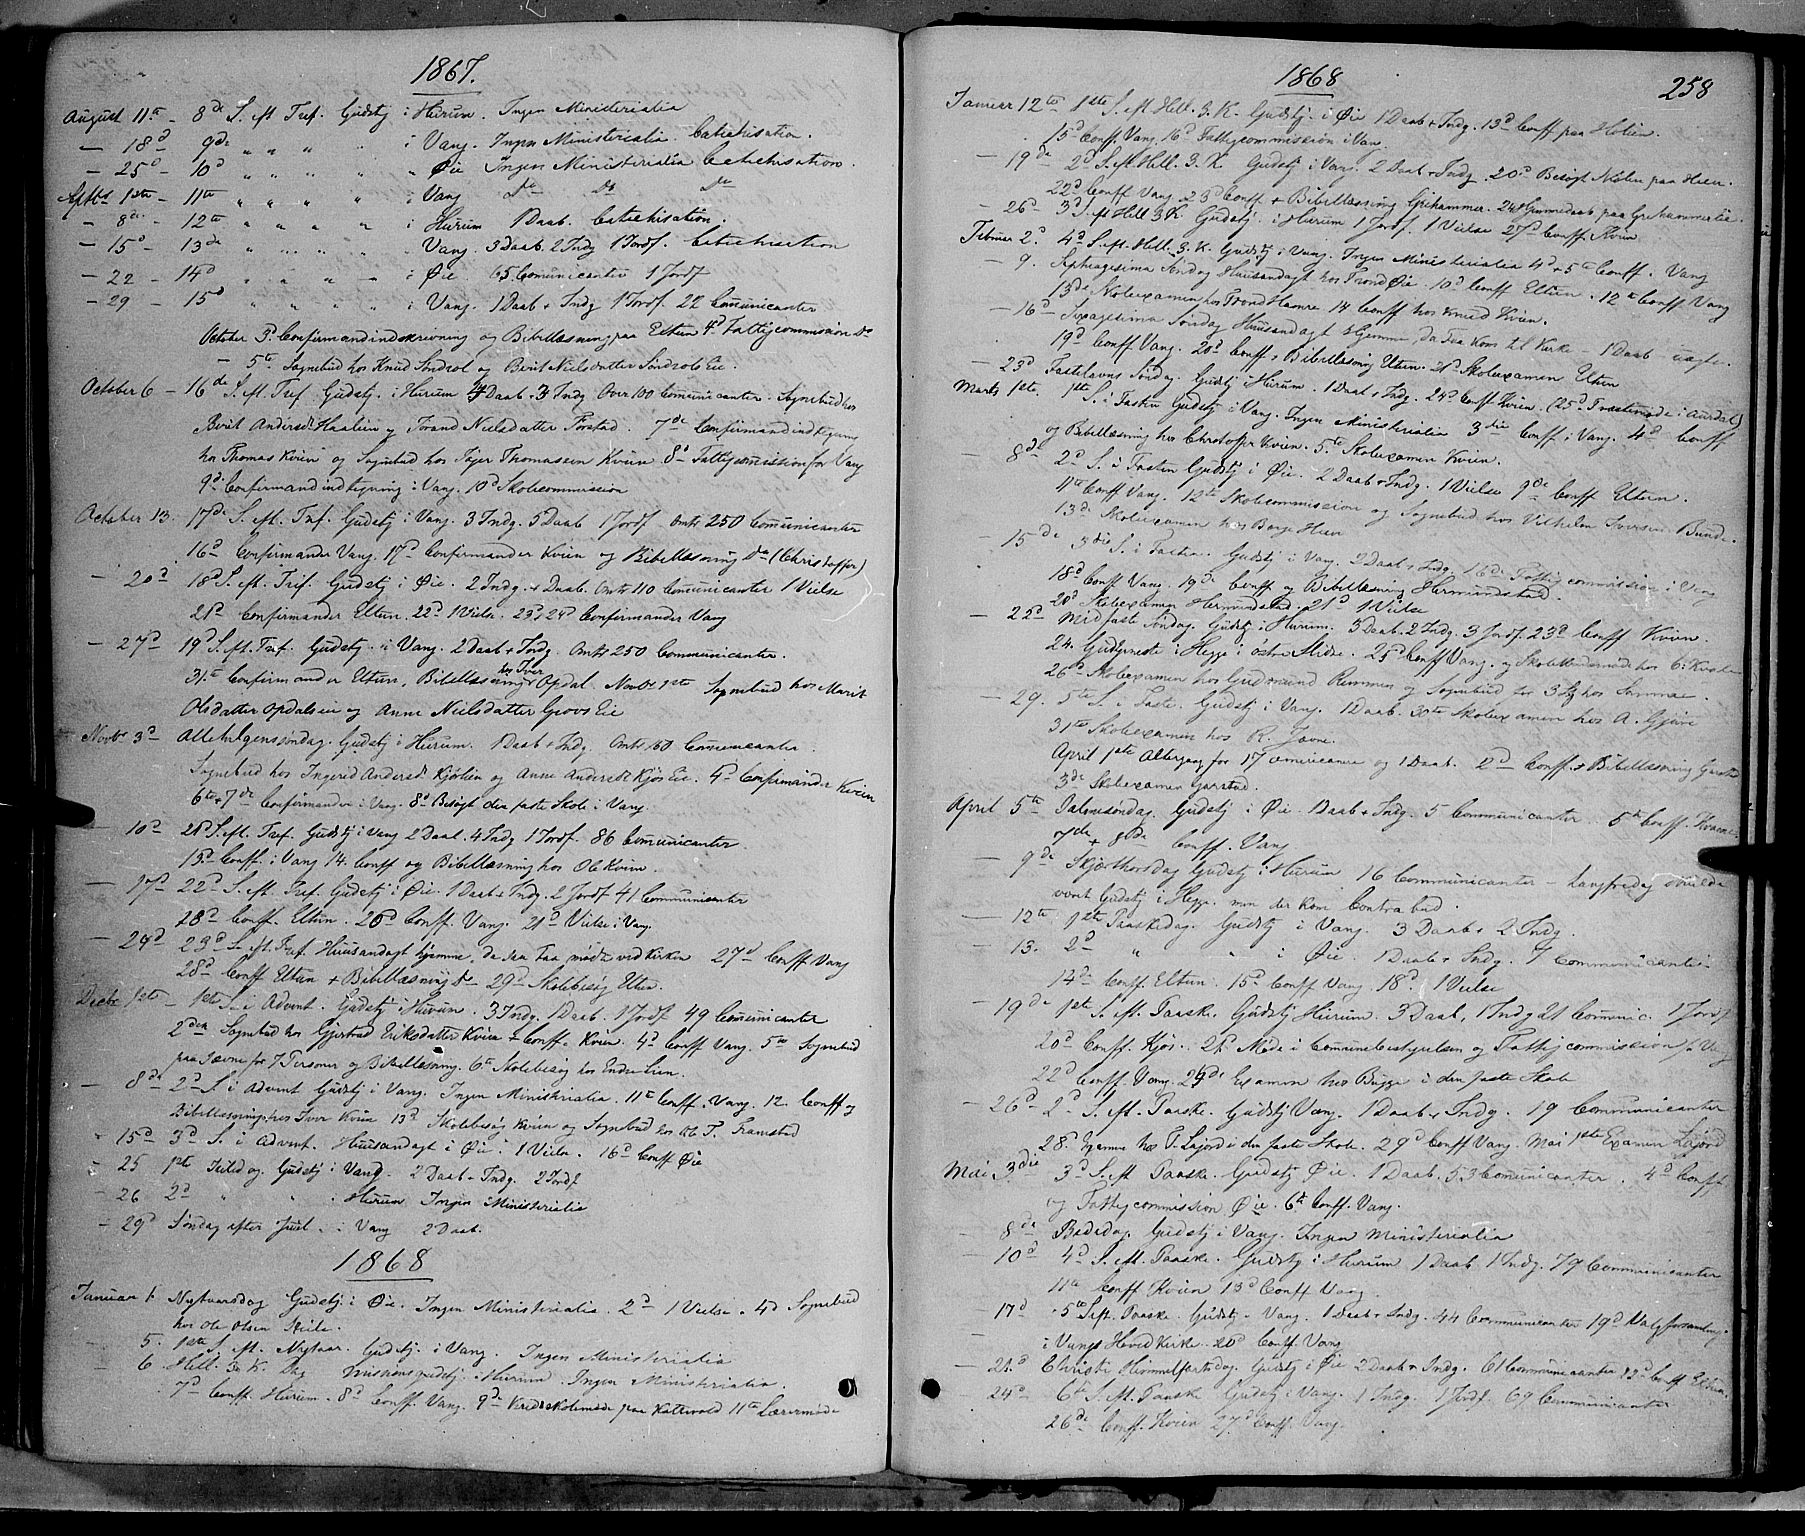 1867.
August 11te - 8de S. eft Tref. Gudstj i Hurum. Ingen Ministerialia
— 18d 9de " " " " i Vang. Ingen Ministerialia Catechisation.
— 25d - 10d " " " " " Øie Ingen Ministerialia Catechisation.
Septbr 1ste - 11te " " " " i Vang do do do
— 8de - 12te " " " " i Hurum 1 Daab. Catechisation.
— 15d - 13de " " " " Vang. 3 Daab. 2 Indg 1 Jordf. Catechisation
— 22 - 14d " " " - i Øie. 65 Comunicanter 1 Jordf
— 29 - 15d " " " " i Vang. 1 Daab + Indg 1 Jordf. 22 Comunicanter
October 3d Confirmandindskrivning og Bibellæsning paa Eltun 4d Fattigcommission do
— 5te Sognebud hos Knud Søndrol og Berit Nielsdatter Søndrols Eie.
October 6 - 16de S. eft. Tref Gudstj. i Hurum 4 Daab + 3 Indg Over 100 Comunicanter. Sognebud hos
Berit Andersdr Haalien og Torand Nielsdatter Forstad. 7de Confirmandindtegning
hos Thomas Kvien og Sognebud hos Thomassen Kvien 8d Fattigcommission for Vang
9d Confirmandindtegning i Vang. 10d Skolecommission
October 13. 17de S. eft. Tref. Gudstj i Vang. 3 Indg. 5 Daab 1 Jordf omtr 250 Comunicanter
16d Confirmander Vang. 17d Confirmander Kvien og Bibellæsning do (Christoffer)
— 20d 18d S. eft. Tref. Gudstj i Øie. 2 Indg. + Daab. omtr 110 Comunicanter 1 Vielse
21de Confirmander Eltun. 22d 1 Vielse. 23d, 24d Confirmander Vang
— 27d 19d S. eft. Tref. Gudstj. i Vang. 2 Daab + Indg. omtr 250 Communicanter.
31te Confirmander Eltun, Bibellæsning hos Iver Opdal. Novbr 1ste Sognebud hos Marit
Olsdatter Opdalseie og Anne Nielsdatter Grovs Eie
Novbr 3d Allehelgenssøndag. Gudstj i Hurum. 1 Daab + Indg. omtr 150 Comunicanter.
Sognebud hos Ingerid Andersdr Kjørlien og Anne Andersdr Kjøs Eie. 5d Confirmander Kvien
6te + 7de Confirmander i Vang. 8d Besøgt den faste Skole i Vang.
— 10d 21d S. eft. Tref. Gudstj i Vang 2 Daab. 4 Indg 1 Jordf. 86 Comunicanter.
13d Conff. i Vang 14. Conff og Bibellæsning hos Ole Kvien.
— 17d 22d S. eft. Tref. Gudstj i Øie. 1 Daab + Indg. 2 Jordf 41 Communicanter
Conff. Eltun. 20d Conff. Vang. 21d Vielse i Vang.
— 24d 23d S. eft. Tref. Huusandagt hjemme, da saa Faa mødte ved Kirken 27d Conff Vang
28d Conff Eltun + Bibellæsning do 29d Skolebesøg Eltun.
Decbr 1ste - 1ste S. i Advent. Gudstj i Hurum. 3 Indg. 1 Daab. 1 Jordf 49 Comunicanter
2den Sognebud hos Gjertrud Eriksdatter Kvien + Conff. Kvien. 4d Conff Vang. 5te Sognebud
paa Jævne for 7 Personer og Bibellæsning. 6te Skolebesøg hos Endre Lien.
— 8de 2d S. i Advent Gudstj i Vang. Ingen Ministerialia. 11te Conff. Vang. 12. Conff og
Bibellæsning hos Iver Kvien 13d Skolebesøg Kvien og Sognebud hos Ole T. Framstad
— 15d 3d S. i Advent. Huusandagt i Øie. 1 Vielse. 16d Conff Øie
— 25 1ste Juledag. Gudstj i Vang. 2 Daab + Indg. 2 Jordf
— 26 2d " " i Hurum Ingen Ministerialia
— 29d Søndag efter Juul. i Vang 2 Daab.
1868
Januar 1. Nytaarsdag Gudstj. i Øie. Ingen Ministerialia. 2d 1 Vielse. 4d Sognebud
hos Ole Olsen
— 5. 1ste S. eft. Nytaar. Gudstj. i Vang. Ingen Ministerialia
— 6 Hell. 3 K. Dag Missionsgudstj. i Hurum. Ingen Ministerialia.
7d Conff. Hurum. 8d Conff. Vang. 9d Kredsskolemøde paa Kattevold 11te Lærermøde
1868
258
Januar 12te 1ste S. eft Hell. 3. K. Gudstj. i Øie 1 Daab + Indg. 13d Conff paa Høien.
15d Conff. Vang. 16d Fattigcommission i Vang.
— 19de 2d S. eft Hell. 3. K. Gudstj i Vang. 2 Daab + Indg. 20d Besøgt Skolen paa Hien.
22d Conff Vang. 23d Conff + Bibellæsning Grihammer. 24d Hjemmedaab paa Grihammerlie.
— 26d 3d S. eft Hell 3 K. Gudstj. i Hurum 1 Jordf. 1 Vielse 27d Conff. Kvien
Februar 2d 4d S. eft. Hell. 3. K. Gudstj i Vang. Ingen Ministerialia 4d + 5te Conff. Vang
— 9. Septuagesima Søndag Huusandagt hos Trond Øie. 10d Conff Eltun. 12te Conff Vang
13de Skoleexamen hos Trond Hamre 14 Conff hos Knud Kvien.
— 16d Sexagesima Søndag Huusandagt hjemme, da Faa kom til Kirke - 1 Daab uægte.
19d Conff Vang. 20d Conff + Bibellæsning Eltun. 21d Skoleexamen Eltun
— 23d Fastelavns Søndag. Gudstj Hurum. 1 Daab + Indg. 24d Conff Kvien. (25d Præstemøde i Aurdal)
Marts 1ste. 1ste S. i Fasten Gudstj i Vang. Ingen Ministerialia 3die Conff i Vang. 4d Conff
og Bibellæsning hos Christoffer Kvien. 5te Skoleexamen Kvien.
— 8de 2d S. i Fasten Gudstj i Øie. 2 Daab + Indg. 1 Vielse 9de Conff. Eltun.
11te Conff Vang. 12te Skolecommission og Sognebud hos Vilhelm Iversen Bunde.
13de Skoleexamen hos Børge Hien
— 15de 3die S. i Fasten. Gudstj i Vang. 2 Daab + Indg. 16de Fattigcommission i Vang
18d Conff. Vang. 19de Conff og Bibellæsning Hermundstad.
20d Skoleexamen Hermundstad. 21d 1 Vielse
— 22d Midfaste Søndag. Gudstj i Hurum. 3 Daab. 2 Indg. 3 Jordf. 23d Conff Kvien.
24. Gudstjeneste i Hegge i østre Slidre. 25d Conff Vang. og
26d Skoleexamen hos Gudmund Remmen og Sognebud for 3 hos Samme.
— 29. 5te S. i Faste. Gudstj i Vang. 1 Daab. 30te Skoleexamen hos A. Gjøve
31te Skoleexamen hos K. Jævne.
April 1ste Altergang for 17 Americanere og 1 Daab. 2d Conff + Bibellæsning Garstad
3de Skoleexamen Garstad.
April 5te Palmesøndag. Gudstj i Øie. 1 Daab + Indg. 5 Communicanter. 6te Conff. Kvame.
7de + 8de Conff. Vang
— 9de Skjærthorsdag Gudstj i Hurum 16 Communicanter - Langfredag skulde
været Gudstj i Hegge. men der kom Contrabud.
— 12te 1ste Paaskedag. Gudstj i Vang. 3 Daab + 2 Indg.
— 13. 2d " " i Øie. 1 Daab + Indg. 7 Communicanter
14de Conff. Eltun. 15d Conff Vang. 18d 1 Vielse
— 19de 1ste S. eft. Paaske. Gudstj Hurum. 3 Daab, 1 Indg 21 Comunic. 1 Jordf
20d Conff. Kjøs. 21d Møde i Comunebestyrelsen og Fattigcommission for Vang
22d Conff. Vang. 24de Examen hos Bugge i den faste Skole
— 26d 2d S. eft. Paaske. Gudstj Vang. 1 Daab + Indg. 19 Communicanter
28. Examen hos T. Lajord i den faste Skole. 29d Conff Vang. Mai 1ste Examen Lajord
Mai 3die 3d S. eft Paaske. Gudstj Øie. 1 Daab 53 Comunicanter. 4d Conff
og Fattigcommission Øie. 6te Conff. Vang.
— 8de Bededag. Gudstj i Vang. Ingen Ministerialia
— 10d 4d S. eft. Paaske. Gudstj i Hurum 1 Daab 1 Indg. 79 Communicanter
11te Conff Kvien 13d Conff Vang.
— 17d 5te S eft. Paaske. Gudstj. Vang. 1 Daab + Indg. 44 Communicanter 19d Valgforsamling
i Vangs HovedKirke. 20d Conff. Vang
— 21.d Christi Himmelfartsdag. Gudstj i Øie 2 Daab + Indg. 61 Communicanter 22d Conff Eltun.
— 24d 6te S. eft. Paaske Gudstj i Vang. 1 Indg. 1 Jordf. 69 Communicanter
26de Conff. Kvien 27d Conff. Vang.